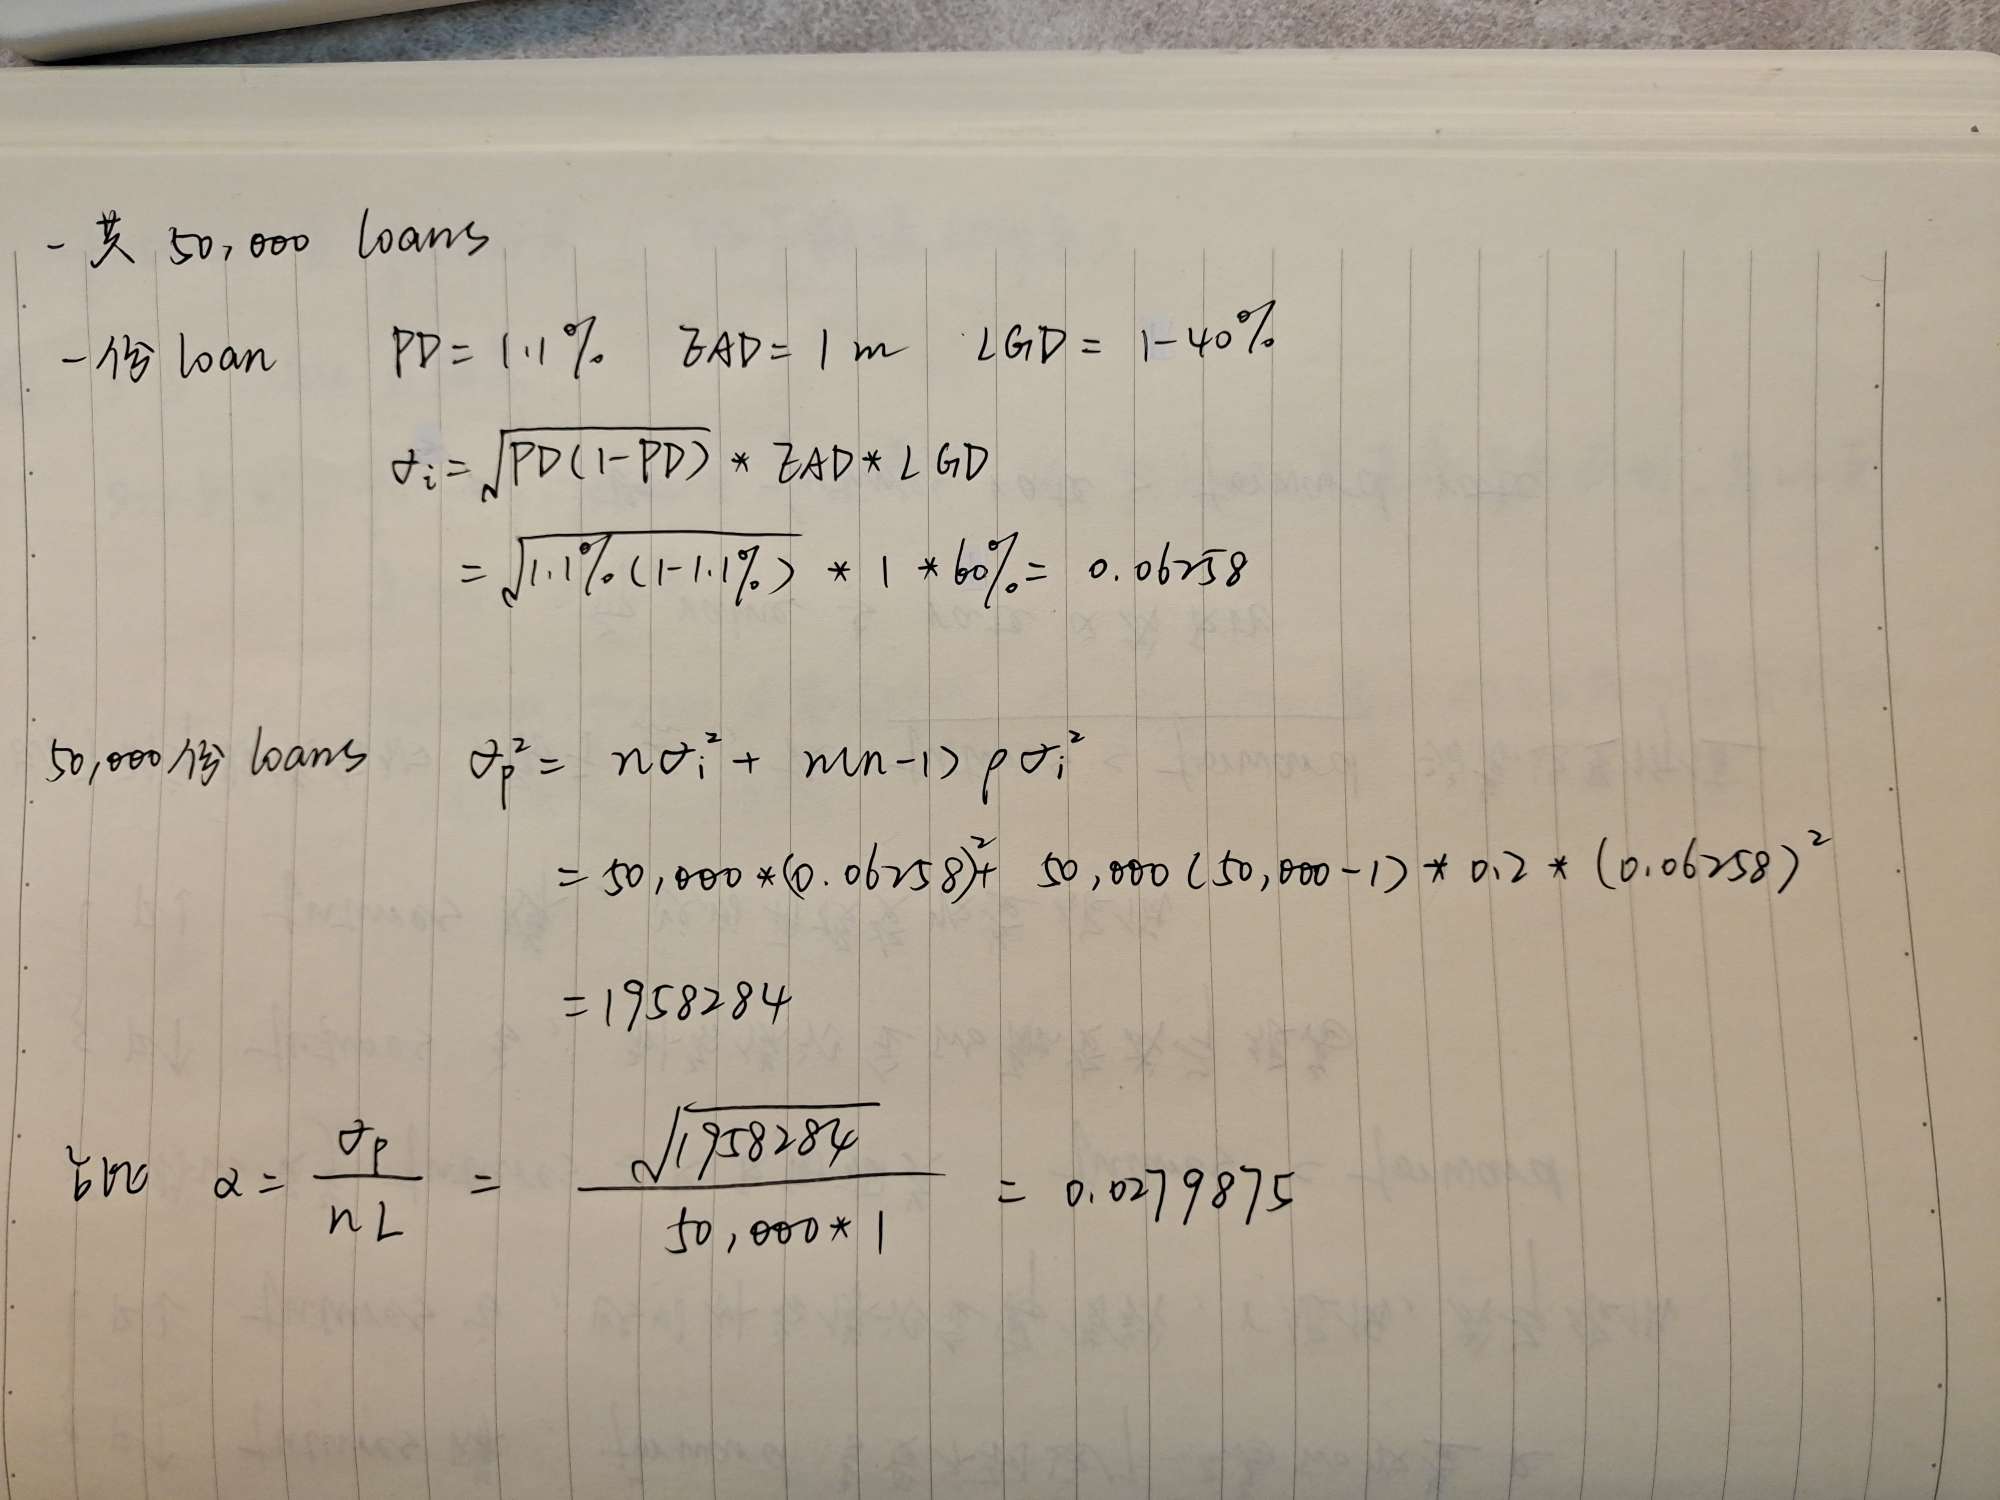 一共 50,000 loans
一份 loan PD = 1.1% EAD = 1 m LGD = 1-40%
σi = √PD(1-PD) * EAD * LGD
= √1.1%(1-1.1%) * 1 * 60% = 0.06258
50,000份 loans σp² = nσi² + n(n-1)ρσi²
= 50,000*(0.06258)² + 50,000(50,000-1) * 0.2 * (0.06258)²
= 1958284
所以 α = σp / nL = √1958284 / 50,000*1 = 0.0279875